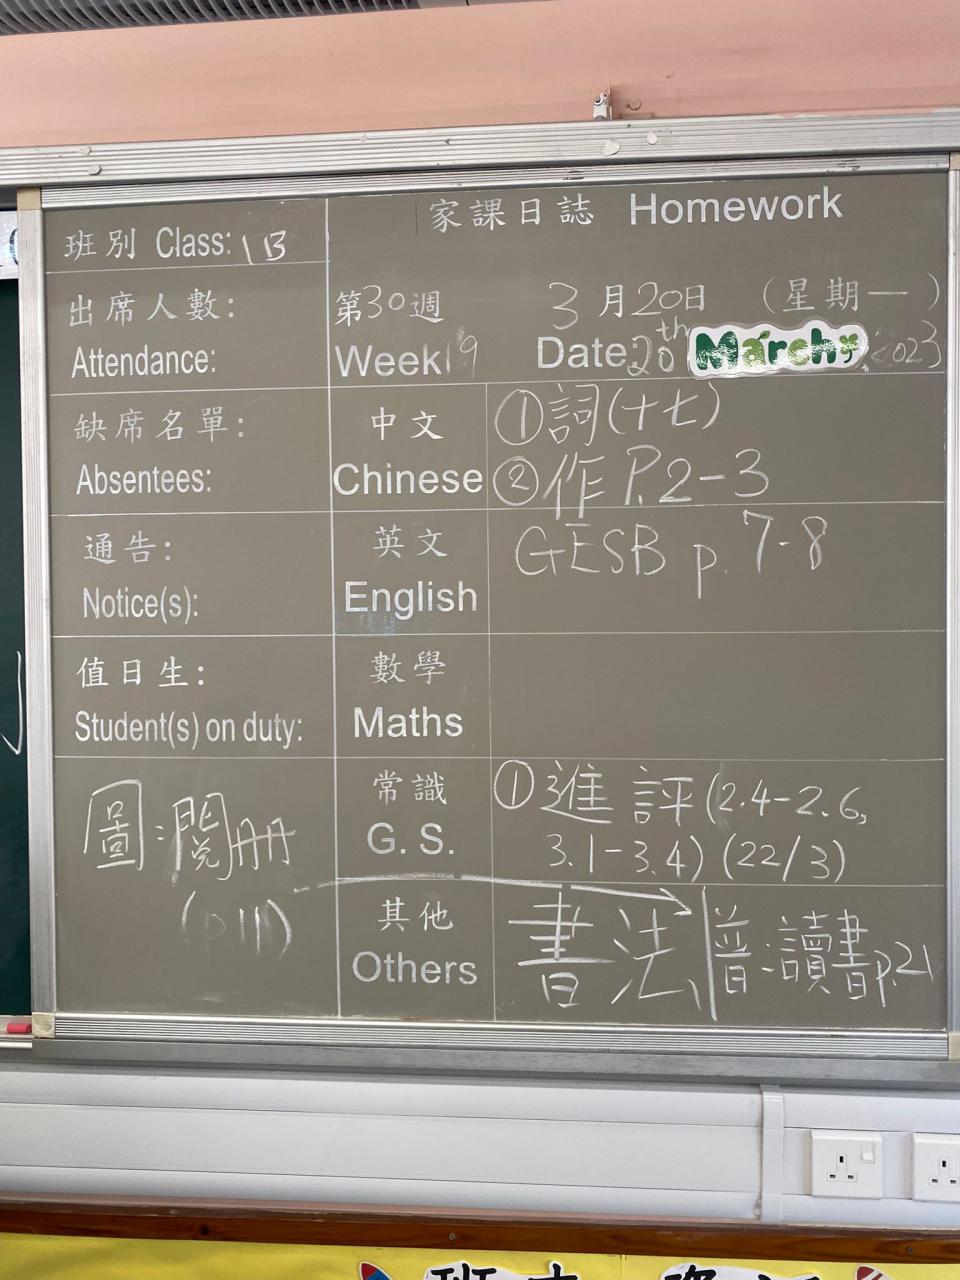 家課日誌 Homework
班別 Class: 1B
出席人數:
Attendance:
第30週 3月20日 (星期一)
Week 19 Date: 20th March 2023
缺席名單:
Absentees:
中文
Chinese
①詞(十七)
②作 P.2-3
通告:
Notice(s):
英文
English
GESB p. 7-8
值日生:
Student(s) on duty:
數學
Maths
常識
G. S.
①進評(2.4-2.6,
3.1-3.4) (22/3)
圖:閱冊
(p11)
其他
Others
書法 普:讀書p.21